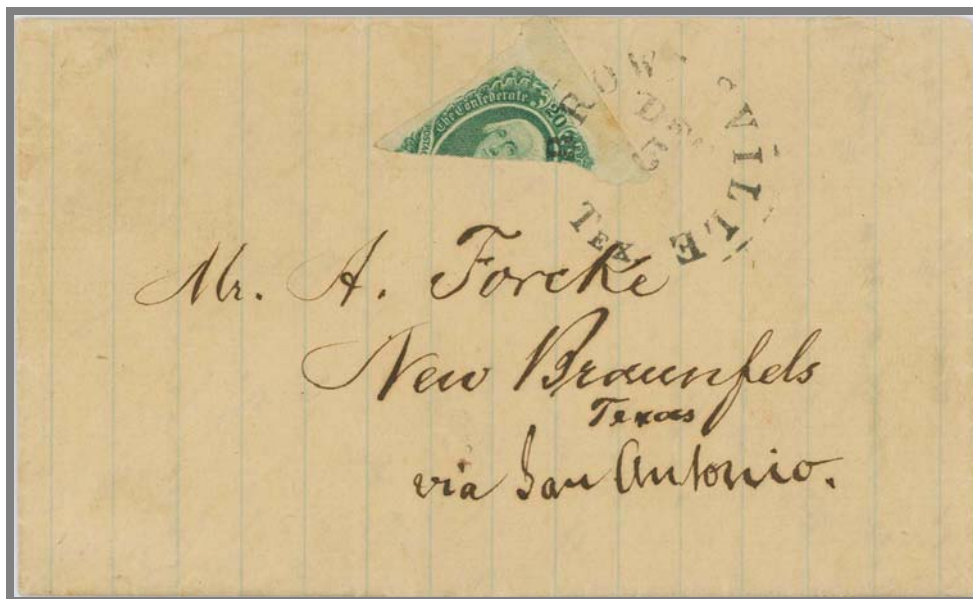 The Confederate
20
BROW SVILLE
DEC
TEX
Mr. A. Forcke
New Braunfels
Texas
via San Antonio.